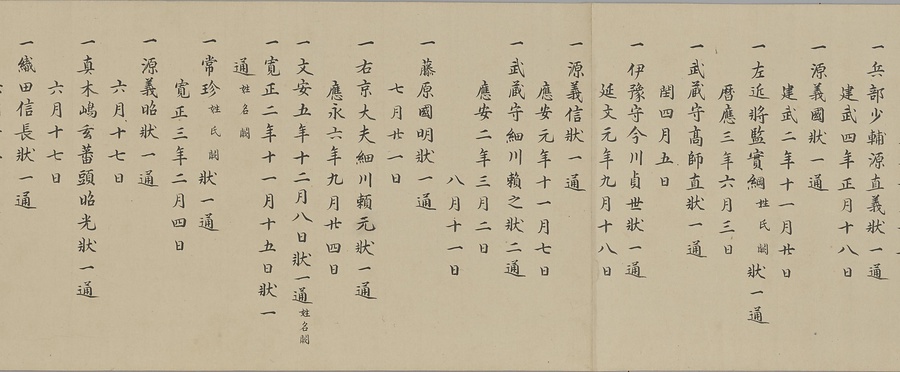 一兵部少輔源直義狀一通
建武四年正月十八日
一源義國狀一通
建武二年十一月廿日
一左近將監實綱姓氏闕狀一通
曆應三年六月三日
一武藏守高師直狀一通
閏四月五日
一伊豫守今川貞世狀一通
延文元年九月十八日
一源義信狀一通
應安元年十一月七日
一武藏守細川賴之狀二通
應安二年三月二日
八月十一日
一藤原國明狀一通
七月廿一日
一右京大夫細川賴元狀一通
應永六年九月廿四日
一文安五年十二月八日狀一通姓名闕
一寬正二年十一月十五日狀一
通姓名闕
一常珍姓氏闕狀一通
寬正三年二月四日
一源義昭狀一通
六月十七日
一真木嶋玄蕃頭昭光狀一通
六月十七日
一織田信長狀一通